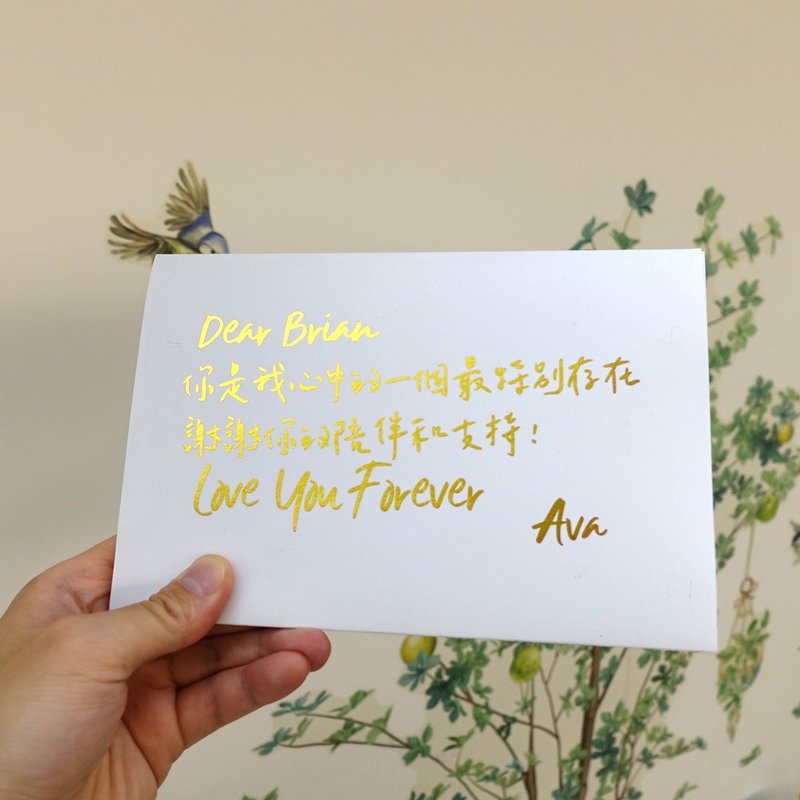 Dear Brian
你是我心中的一個最特別存在
謝謝你的陪伴和支持！
Love You Forever
Ava